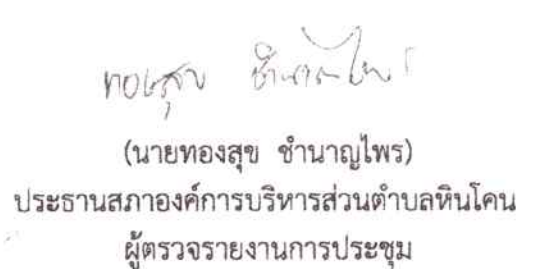 ทองสุข ชำนาญไพร
(นายทองสุข ชำนาญไพร)
ประธานสภาองค์การบริหารส่วนตำบลหินโคน
ผู้ตรวจรายงานการประชุม